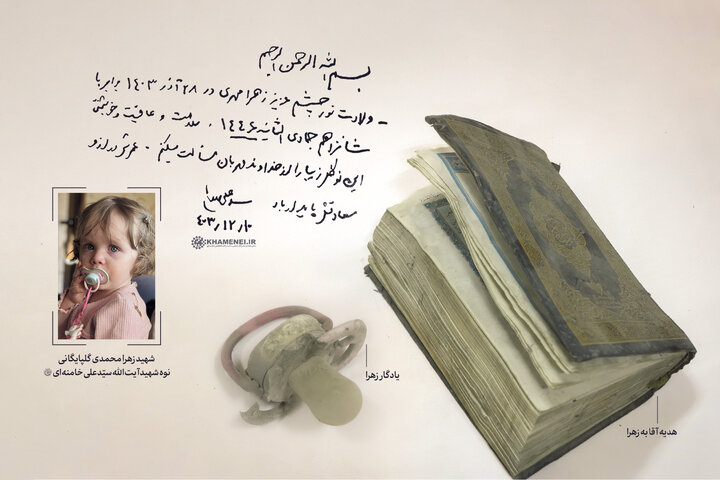 بسم الله الرحمن الرحیم
- ولادت نور چشم عزیز زهرا مهدی در ۲۸ آذر ۱۴۰۳ برابر با
شانزدهم جمادی الثانیه ۱۴۴۶ ، سلامت و عافیت و خوشبختی
این نوگل زیبا را از خداوند مهربان مسألت میکنم - عمرش دراز و
سعادتش پایدار باد
سید علی خامنه‌ای
۴۰۳/۱۲/۱۰
KHAMENEI.IR
شهید زهرا محمدی گلپایگانی
نوه شهید آیت الله سیّدعلی خامنه‌ای
یادگار زهرا
هدیه آقا به زهرا